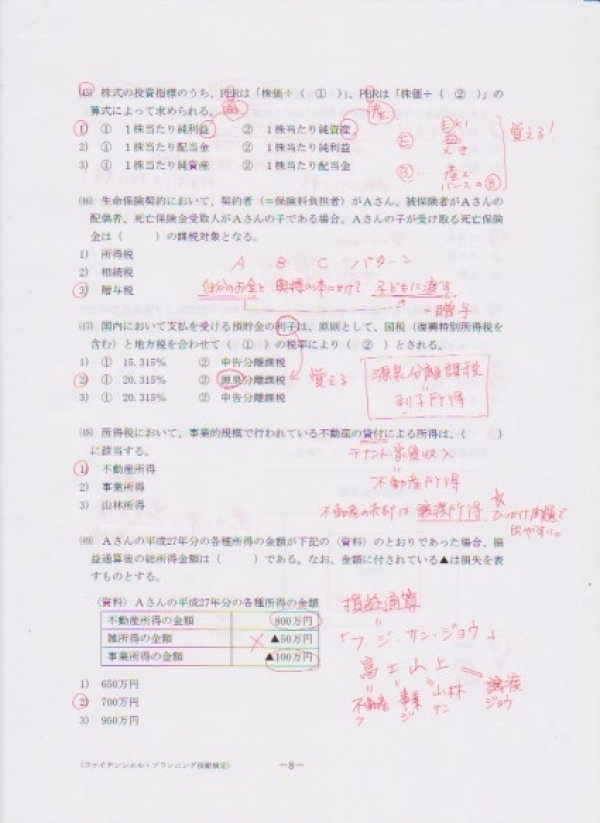 (45) 株式の投資指標のうち、PERは「株価÷( ① )」、PBRは「株価÷( ② )」の
算式によって求められる。
益
産
1) ① 1株当たり純利益 ② 1株当たり純資産
2) ① 1株当たり配当金 ② 1株当たり純利益
3) ① 1株当たり純資産 ② 1株当たり配当金
覚える!
(46) 生命保険契約において、契約者(=保険料負担者)がAさん、被保険者がAさんの
配偶者、死亡保険金受取人がAさんの子である場合、Aさんの子が受け取る死亡保険
金は( )の課税対象となる。
1) 所得税
2) 相続税
3) 贈与税
A B C パターン
自分のお金を 奥様の本にかけて 子どもに渡す
贈与
(47) 国内において支払を受ける預貯金の利子は、原則として、国税(復興特別所得税を
含む)と地方税を合わせて( ① )の税率により( ② )とされる。
1) ① 15.315% ② 申告分離課税
2) ① 20.315% ② 源泉分離課税
3) ① 20.315% ② 申告分離課税
覚える
源泉分離課税
利子所得
(48) 所得税において、事業的規模で行われている不動産の貸付による所得は、( )
に該当する。
1) 不動産所得
2) 事業所得
3) 山林所得
テナント・家賃収入
不動産所得
不動産の売却は 譲渡所得
ひっかけ問題で
出やすい。
(49) Aさんの平成27年分の各種所得の金額が下記の〈資料〉のとおりであった場合、損
益通算後の総所得金額は( )である。なお、金額に付されている▲は損失を表
すものとする。
〈資料〉Aさんの平成27年分の各種所得の金額
不動産所得の金額 800万円
雑所得の金額 ▲50万円
事業所得の金額 ▲100万円
1) 650万円
2) 700万円
3) 950万円
損益通算
「フ・ジ・サン・ジョウ」
富士山上
不動産 事業 山林 譲渡
フ ジ サン ジョウ
《ファイナンシャル・プランニング技能検定》
－8－